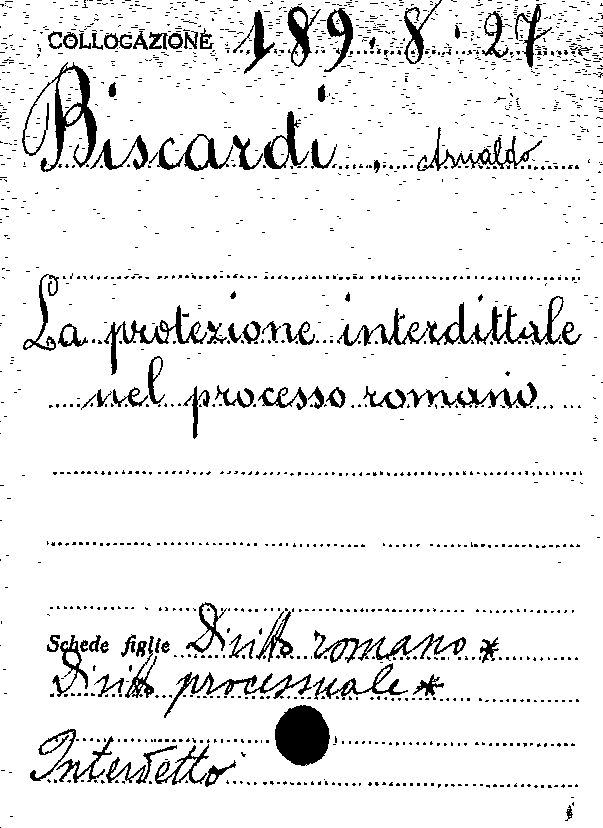 COLLOCAZIONE 189.8.27
Biscardi, Arnaldo
La protezione interdittale
nel processo romano
Schede figlie Diritto romano *
Diritto processuale *
Interdetto